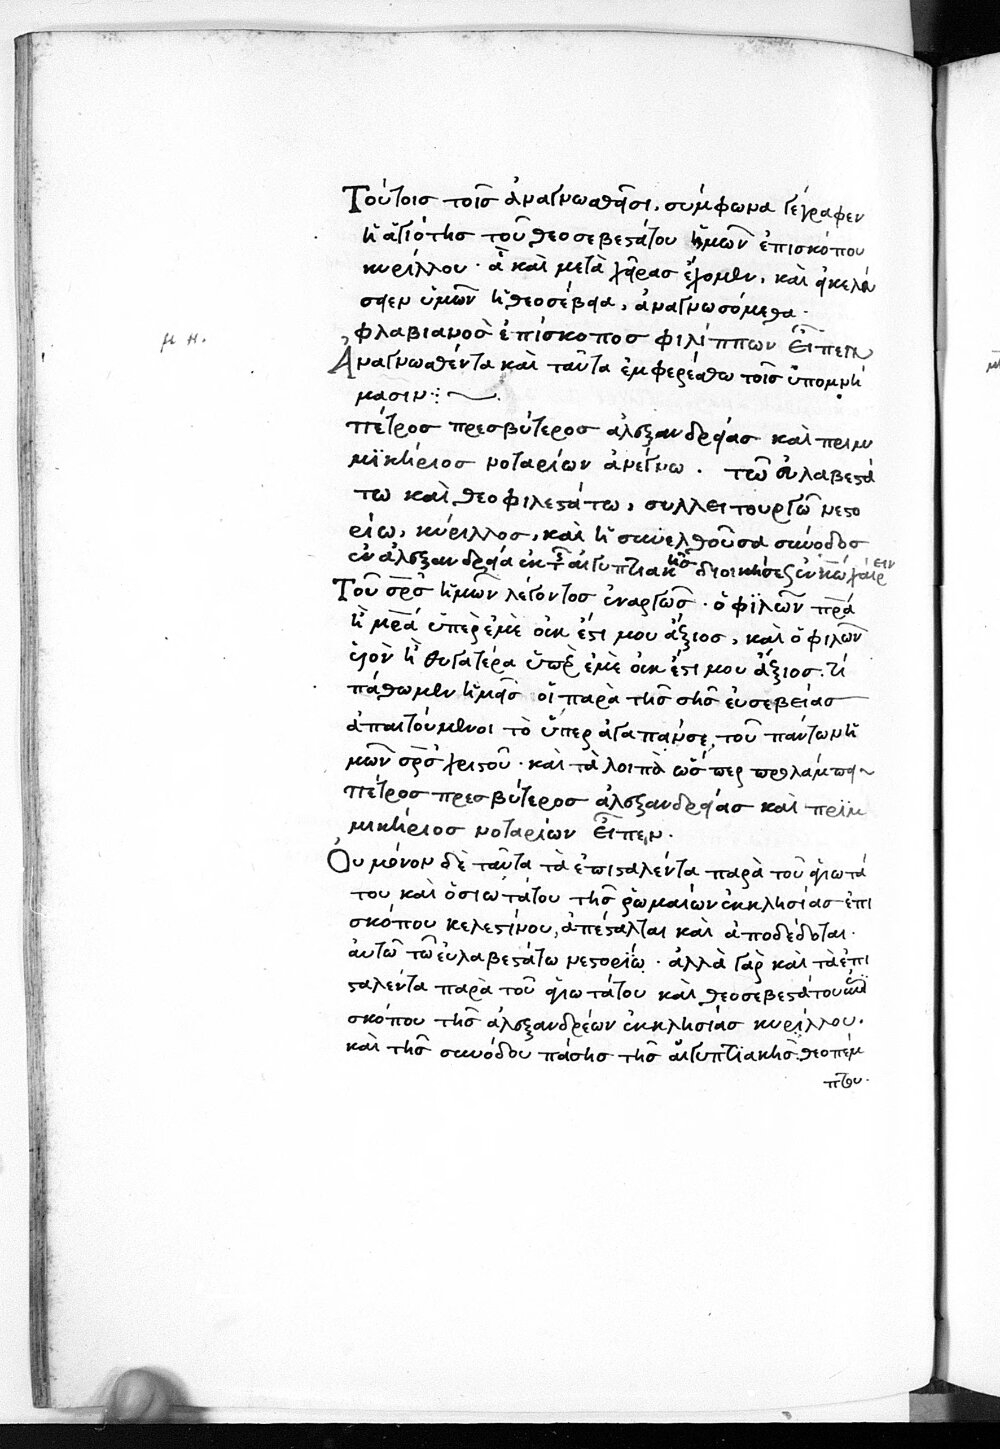 Τούτοις τοῖς ἀναγνωσθεῖσι, σύμφωνα γέγραφεν
ἡ ἁγιότης τοῦ θεοσεβεστάτου ἡμῶν ἐπισκόπου
κυρίλλου · ἃ καὶ μετὰ χεῖρας ἔχομεν, καὶ εἰ κελεύ
σειεν ὑμῶν ἡ θεοσέβεια, ἀναγνωσόμεθα ·
φλαβιανὸς ἐπίσκοπος φιλίππων εἶπεν
μ η.
Ἀναγνωσθέντα καὶ ταῦτα ἐμφερέσθω τοῖς ὑπομνή
μασιν :~
πέτρος πρεσβύτερος ἀλεξανδρείας καὶ πριμι
μϊκήριος νοταρίων ἀνέγνω · τῶ εὐλαβεστά
τω καὶ θεοφιλεστάτω, συλλειτουργῶ νεστο
ρίω, κύριλλος, καὶ ἡ συνελθοῦσα σύνοδος
ἐν ἀλεξανδρεία ἐκ τῆς αἰγυπτιακῆς διοικήσεως ἐν κω χαίρειν
Τοῦ σρ̅ς ἡμῶν λέγοντος ἐναργῶς · ὁ φϊλῶν πρ̅α
ἢ μρ̅α ὑπὲρ ἐμὲ οὐκ ἔστι μου ἄξιος, καὶ ὁ φιλῶν
υἱὸν ἢ θυγατέρα ὑπὲρ ἐμὲ οὐκ ἔστι μου ἄξιος. τί
πάθωμεν ἡμεῖς οἱ παρὰ τῆς σῆς εὐσεβείας
ἀπαιτούμενοι τὸ ὑπεραγαπᾶν σε, τοῦ πάντων ἡ
μῶν σρ̅ς χριστοῦ · καὶ τὰ λοιπὰ ὡς περ προλάμπει
πέτρος πρεσβύτερος ἀλεξανδρείας καὶ πρϊμ
μικήριος νοταρίων εἶπεν.
Οὐ μόνον δὲ ταῦτα τὰ ἐπισταλέντα παρὰ τοῦ ἁγιωτά
του καὶ ὁσιωτάτου τῆς ῥωμαίων ἐκκλησίας ἐπι
σκόπου κελεστίνου, ἀπέσταλται καὶ ἀποδέδοται ·
αὐτῶ τῶ εὐλαβεστάτω νεστορίω · ἀλλὰ γὰρ καὶ τὰ ἐπι
σταλέντα παρὰ τοῦ ἁγιωτάτου καὶ θεοσεβεστάτου ἐπι
σκόπου τῆς ἀλεξανδρέων ἐκκλησίας κυρίλλου ·
καὶ τῆς συνόδου πάσης τῆς αἰγυπτϊακῆς. θεοπέμ
πτου ·